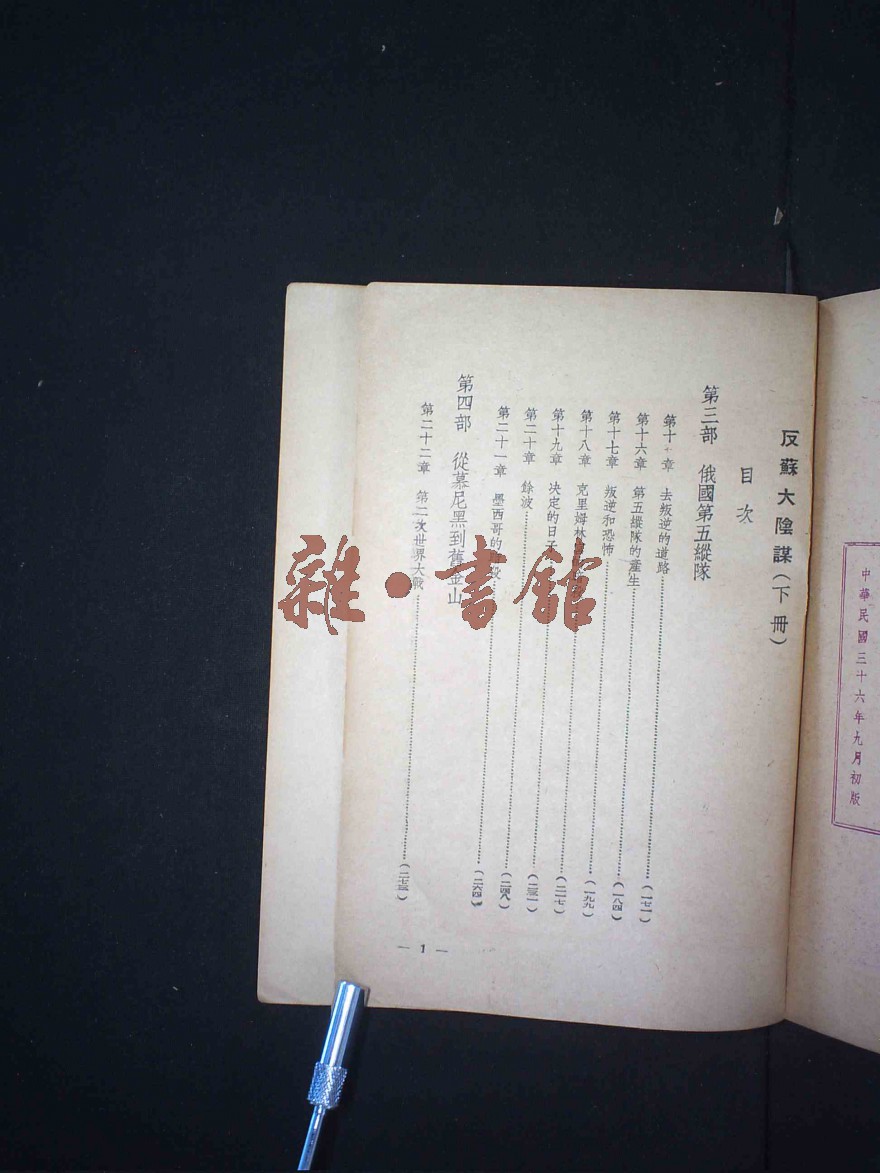 中華民國三十六年九月初版
反蘇大陰謀(下冊)
目次
第三部 俄國第五縱隊
第十 章 去叛逆的道路……(一七一)
第十六章 第五縱隊的產生……(一八四)
第十七章 叛逆和恐怖……(一九九)
第十八章 克里姆林……(二一七)
第十九章 決定的日子……(二三一)
第二十章 餘波……(二四八)
第二十一章 墨西哥的 殺……(二六四)
第四部 從慕尼黑到舊金山
第二十二章 第二次世界大戰……(二七三)
— 1 —
雜·書館